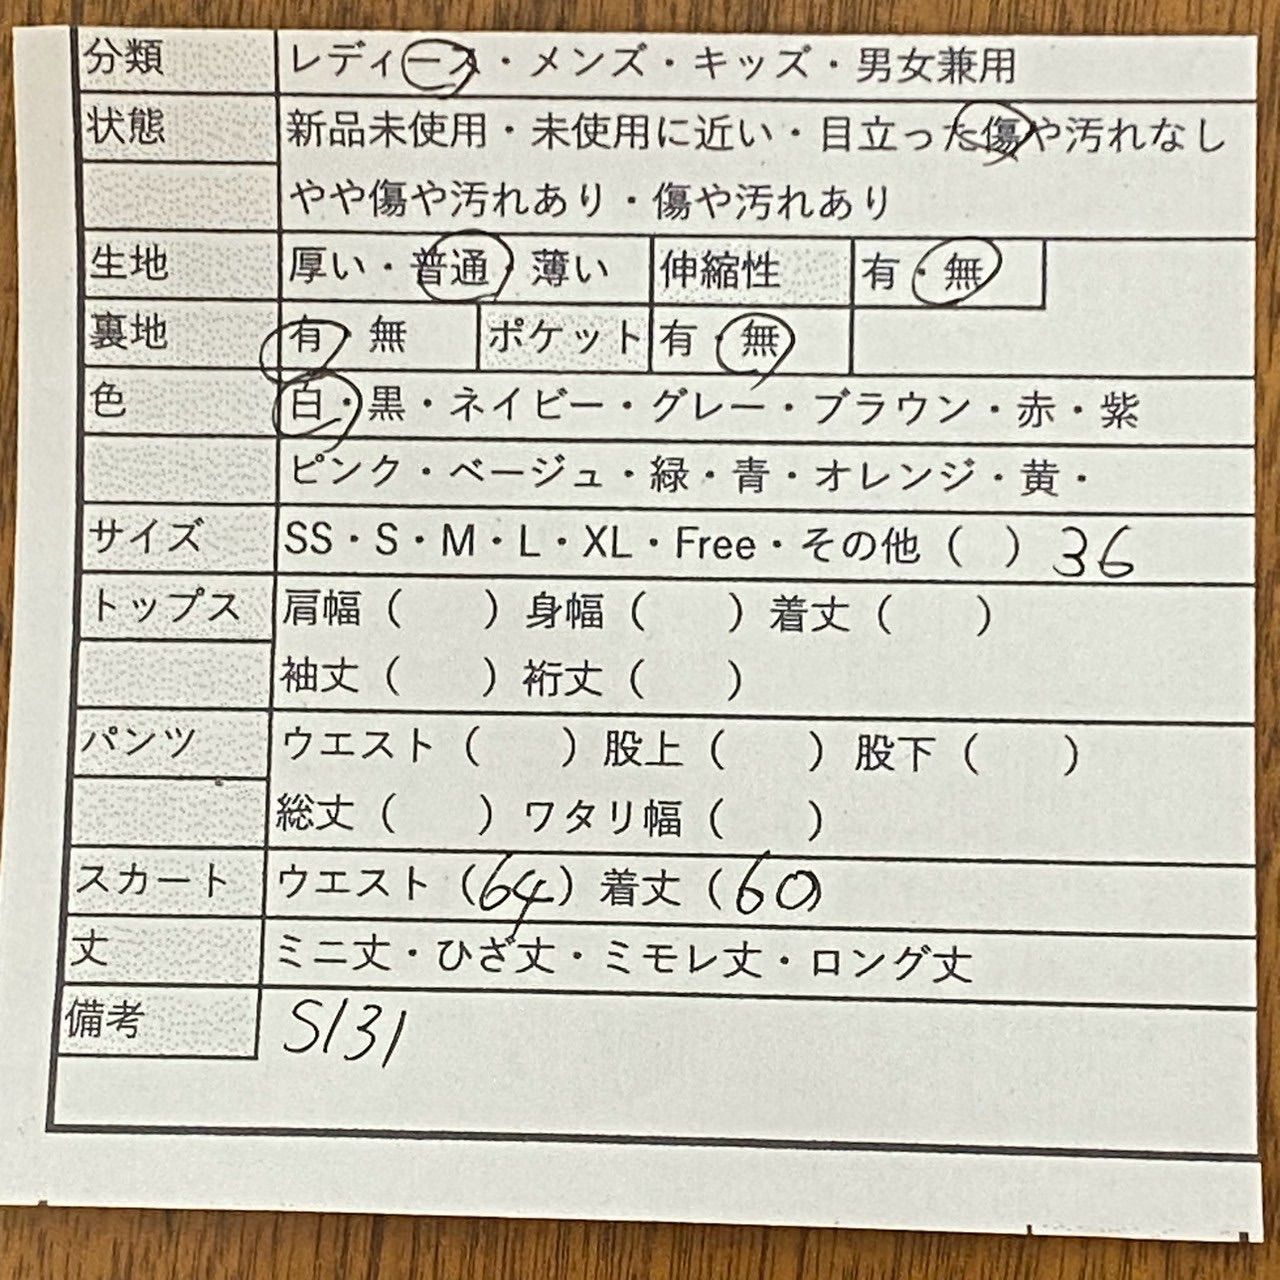 分類 レディース・メンズ・キッズ・男女兼用
状態 新品未使用・未使用に近い・目立った傷や汚れなし
やや傷や汚れあり・傷や汚れあり
生地 厚い・普通・薄い 伸縮性 有・無
裏地 有・無 ポケット 有・無
色 白・黒・ネイビー・グレー・ブラウン・赤・紫
ピンク・ベージュ・緑・青・オレンジ・黄・
サイズ SS・S・M・L・XL・Free・その他（　）36
トップス 肩幅（　　）身幅（　　）着丈（　　）
袖丈（　　）裄丈（　　）
パンツ ウエスト（　　）股上（　　）股下（　　）
総丈（　　）ワタリ幅（　　）
スカート ウエスト（64）着丈（60）
丈 ミニ丈・ひざ丈・ミモレ丈・ロング丈
備考 S131